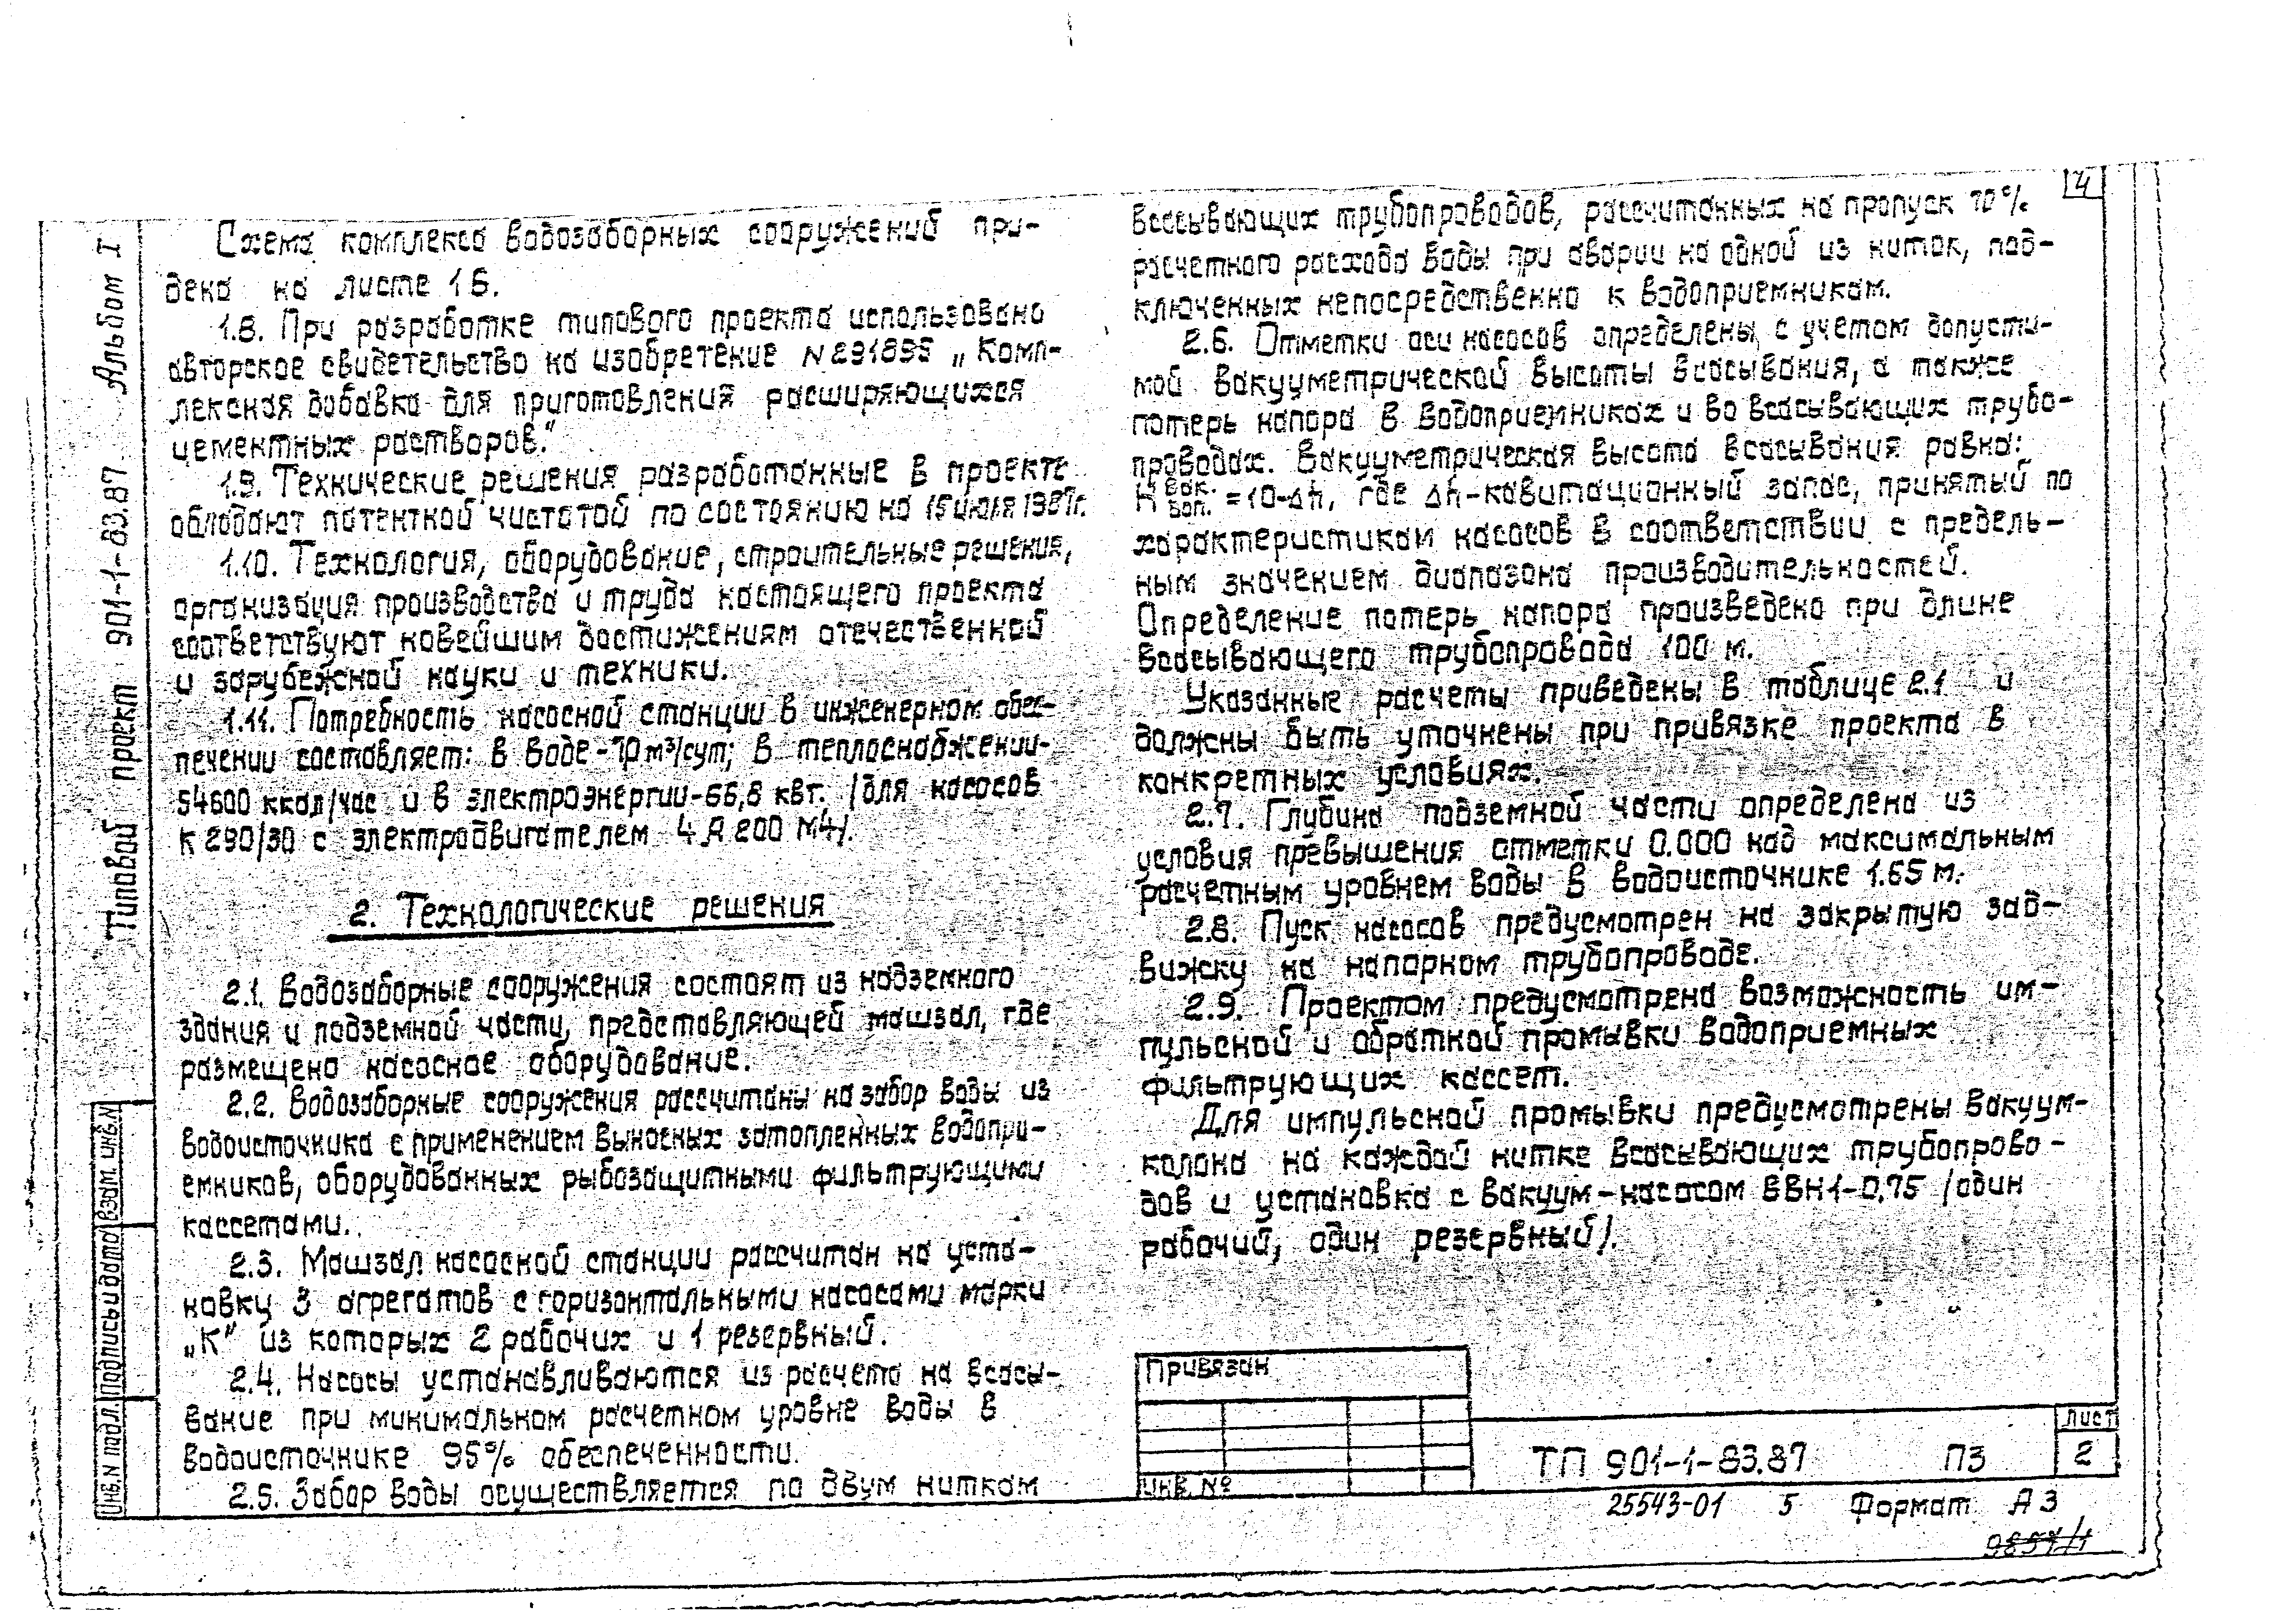 4
Типовой проект 901-1-83.87 Альбом I
Схема комплекса водозаборных сооружений при-
дена на листе 16.
1.8. При разработке типового проекта использовано
авторское свидетельство на изобретение „Комп-
лексная добавка для приготовления расширяющихся
цементных растворов."
1.9. Технические решения разработанные в проекте
обладают патентной чистотой по состоянию на 15 июля 1987г.
1.10. Технология, оборудование, строительные решения,
организация производства и труда настоящего проекта
соответствуют новейшим достижениям отечественной
и зарубежной науки и техники.
1.11. Потребность насосной станции в инженерном обес-
печении составляет: в воде - 10 м³/сут; в теплоснабжении-
54600 ккал/час и в электроэнергии-66,8 квт. /для насосов
К 290/30 с электродвигателем 4 А 200 М4/.
2. Технологические решения
2.1. Водозаборные сооружения состоят из надземного
здания и подземной части, представляющей машзал, где
размещено насосное оборудование.
2.2. Водозаборные сооружения рассчитаны на забор воды из
водоисточника с применением выносных затопленных водопри-
емников, оборудованных рыбозащитными фильтрующими
кассетами.
2.3. Машзал насосной станции рассчитан на уста-
новку 3 агрегатов с горизонтальными насосами марки
„К" из которых 2 рабочих и 1 резервный.
2.4. Насосы устанавливаются из расчета на всасы-
вание при минимальном расчетном уровне воды в
водоисточнике 95% обеспеченности.
2.5. Забор воды осуществляется по двум ниткам
всасывающих трубопроводов, рассчитанных на пропуск 70%
расчетного расхода воды при аварии на одной из ниток, под-
ключенных непосредственно к водоприемникам.
2.6. Отметки оси насосов определены с учетом допусти-
мой вакуумметрической высоты всасывания, а также
потерь напора в водоприемниках и во всасывающих трубо-
проводах. Вакууметрическая высота всасывания равна:
H вак. доп. = 10-Δh, где Δh-кавитационный запас, принятый по
характеристикам насосов в соответствии с предель-
ным значением диапазона производительностей.
Определение потерь напора произведено при длине
всасывающего трубопровода 100 м.
Указанные расчеты приведены в таблице 2.1 и
должны быть уточнены при привязке проекта в
конкретных условиях.
2.7. Глубина подземной части определена из
условия превышения отметки 0.000 над максимальным
расчетным уровнем воды в водоисточнике 1.65 м.
2.8. Пуск насосов предусмотрен на закрытую зад-
вижку на напорном трубопроводе.
2.9. Проектом предусмотрена возможность им-
пульсной и обратной промывки водоприемных
фильтрующих кассет.
Для импульсной промывки предусмотрены вакуум-
колона на каждой нитке всасывающих трубопрово-
дов и установка с вакуум-насосом ВВН1-0,75 /один
рабочий, один резервный/.
Привязан
Инв. №
ТП 901-1-83.87 ПЗ
Лист
2
25543-01 5 Формат А3
9857/1
Инв.N подл. Подпись и дата Взам. инв.N